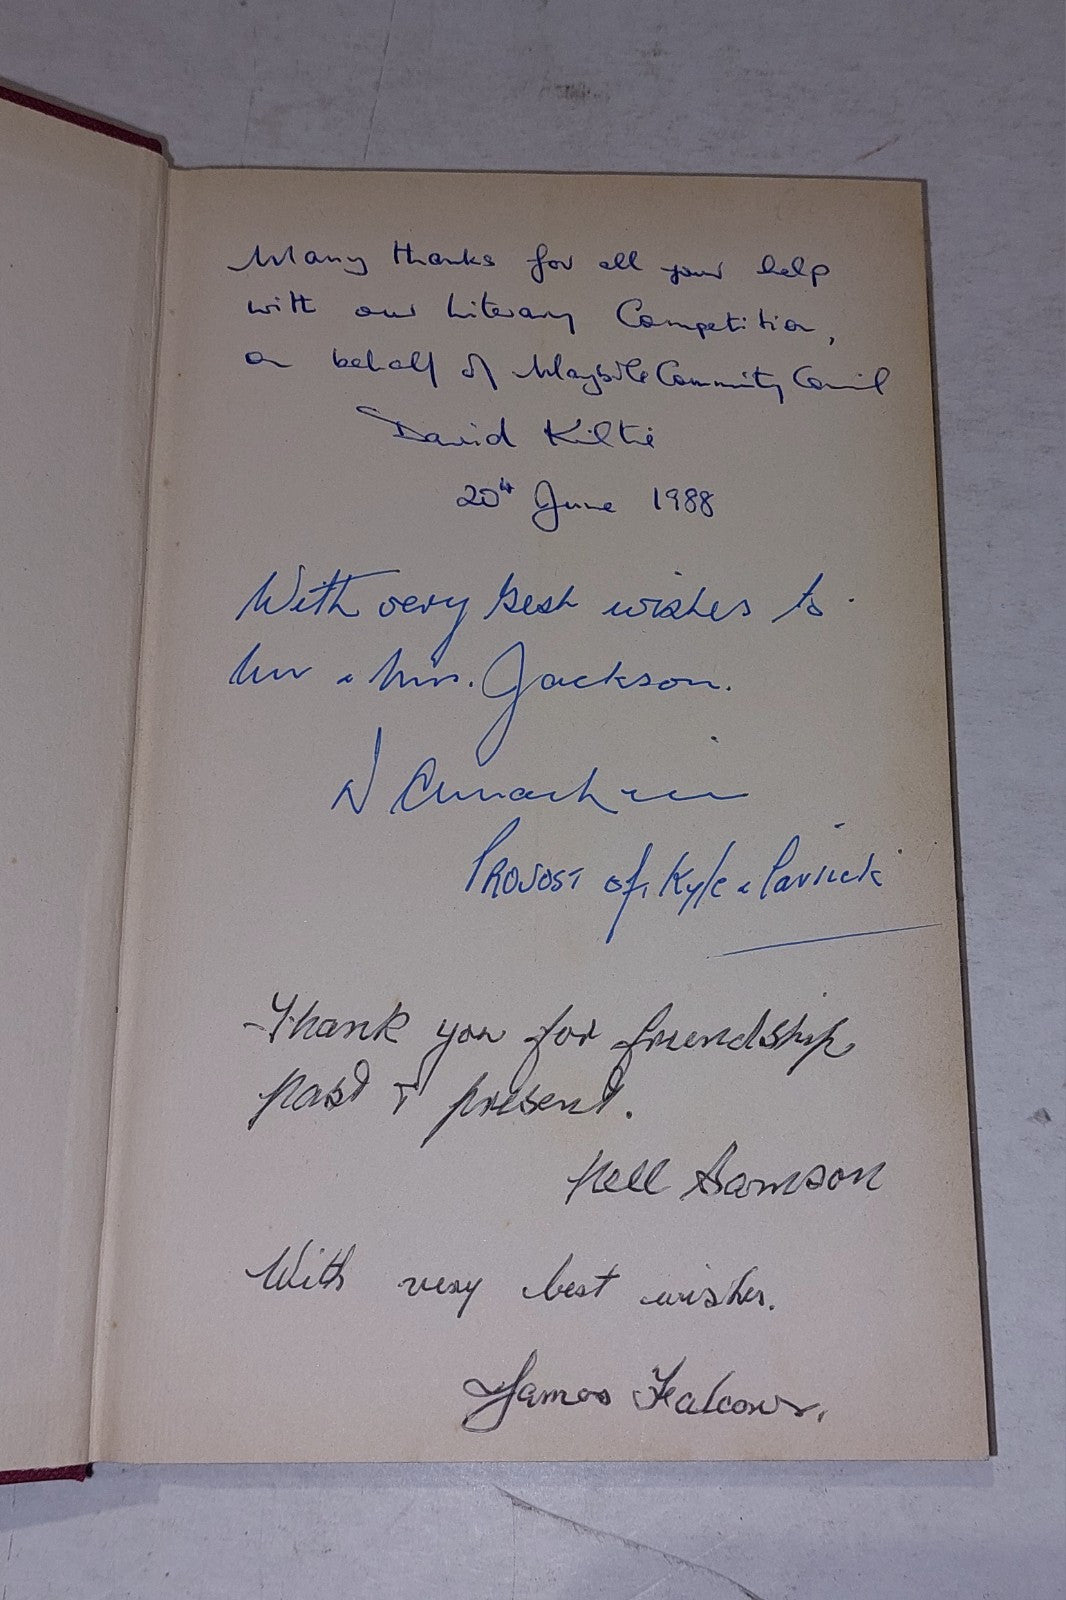 Many thanks for all your help
with our Literary Competition,
on behalf of Maybole Community Council
David Kiltie
20th June 1988
With very best wishes to
Mr & Mrs. Jackson.
Provost of Kyle & Carrick
Thank you for friendship
past & present.
Nell Samson
With very best wishes.
James